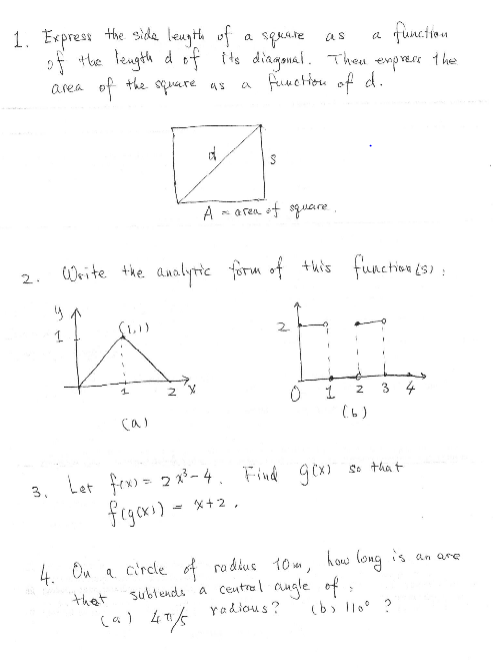 1. Express the side length of a square as a function
of the length d of its diagonal. Then express the
area of the square as a function of d.
d
s
A = area of square.
2. Write the analytic form of this function(s):
y
1
(1,1)
1 2 x
(a)
2
0 1 2 3 4
(b)
3. Let f(x) = 2x³-4. Find g(x) so that
f(g(x)) = x+2.
4. On a circle of radius 10m, how long is an arc
that subtends a central angle of:
(a) 4π/5 radians? (b) 110° ?